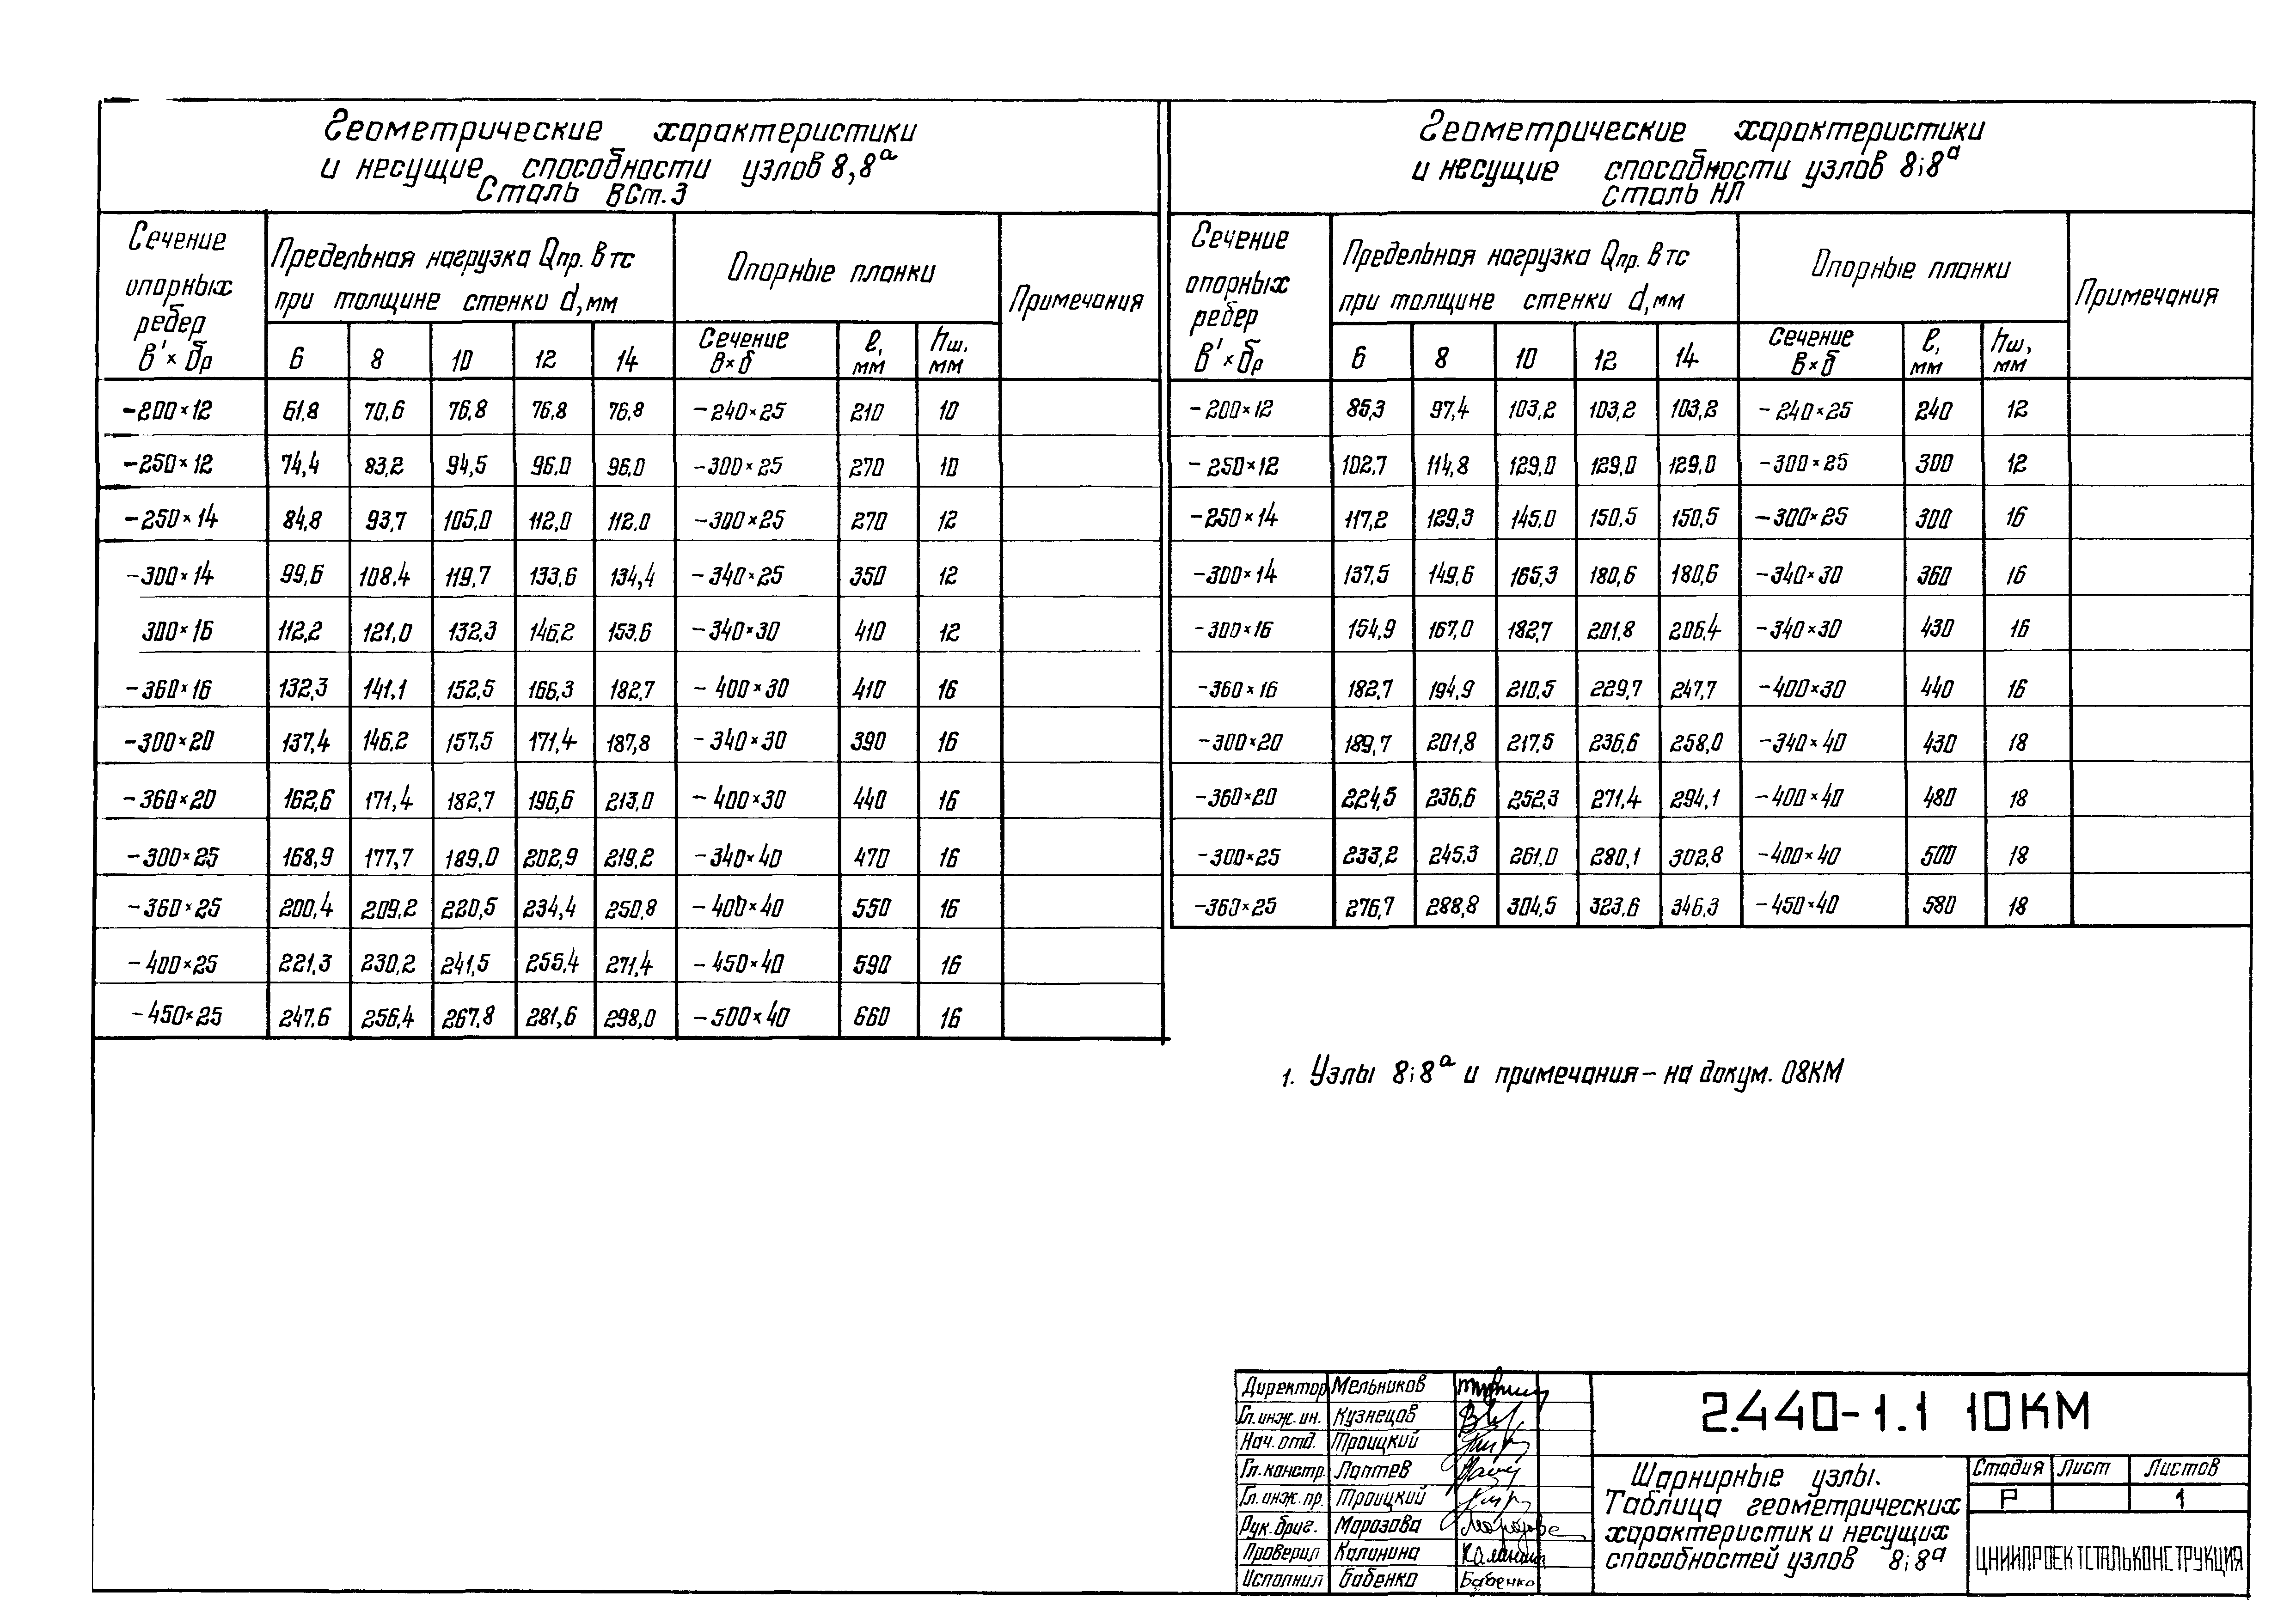 Геометрические характеристики
и несущие способности узлов 8,8ᵃ
Сталь ВСт.3
Сечение опорных ребер в'×δр | Предельная нагрузка Qпр. в тс при толщине стенки d, мм | Опорные планки | Примечания
6 | 8 | 10 | 12 | 14 | Сечение в×δ | ℓ, мм | hш, мм
-200×12 | 61,8 | 70,6 | 76,8 | 76,8 | 76,8 | -240×25 | 210 | 10
-250×12 | 74,4 | 83,2 | 94,5 | 96.0 | 96.0 | -300×25 | 270 | 10
-250×14 | 84,8 | 93,7 | 105,0 | 112,0 | 112.0 | -300×25 | 270 | 12
-300×14 | 99,6 | 108.4 | 119,7 | 133,6 | 134,4 | -340×25 | 350 | 12
300×16 | 112,2 | 121,0 | 132,3 | 146,2 | 153,6 | -340×30 | 410 | 12
-360×16 | 132,3 | 141,1 | 152,5 | 166,3 | 182,7 | -400×30 | 410 | 16
-300×20 | 137,4 | 146,2 | 157,5 | 171,4 | 187,8 | -340×30 | 390 | 16
-360×20 | 162,6 | 171,4 | 182,7 | 196,6 | 213,0 | -400×30 | 440 | 16
-300×25 | 168,9 | 177,7 | 189,0 | 202,9 | 219,2 | -340×40 | 470 | 16
-360×25 | 200,4 | 209,2 | 220,5 | 234,4 | 250,8 | -400×40 | 550 | 16
-400×25 | 221,3 | 230,2 | 241,5 | 255,4 | 271,4 | -450×40 | 590 | 16
-450×25 | 247.6 | 256,4 | 267,8 | 281,6 | 298,0 | -500×40 | 660 | 16
Геометрические характеристики
и несущие способности узлов 8;8ᵃ
Сталь НЛ
Сечение опорных ребер в'×δр | Предельная нагрузка Qпр. в тс при толщине стенки d, мм | Опорные планки | Примечания
6 | 8 | 10 | 12 | 14 | Сечение в×δ | ℓ, мм | hш, мм
-200×12 | 85,3 | 97,4 | 103,2 | 103,2 | 103,2 | -240×25 | 240 | 12
-250×12 | 102,7 | 114,8 | 129,0 | 129,0 | 129,0 | -300×25 | 300 | 12
-250×14 | 117,2 | 129,3 | 145,0 | 150,5 | 150,5 | -300×25 | 300 | 16
-300×14 | 137,5 | 149,6 | 165,3 | 180,6 | 180,6 | -340×30 | 360 | 16
-300×16 | 154,9 | 167,0 | 182,7 | 201,8 | 206,4 | -340×30 | 430 | 16
-360×16 | 182,7 | 194,9 | 210,5 | 229,7 | 247,7 | -400×30 | 440 | 16
-300×20 | 189,7 | 201,8 | 217,5 | 236,6 | 258,0 | -340×40 | 430 | 18
-360×20 | 224,5 | 236,6 | 252,3 | 271,4 | 294,1 | -400×40 | 480 | 18
-300×25 | 233,2 | 245,3 | 261,0 | 280,1 | 302,8 | -400×40 | 500 | 18
-360×25 | 276,7 | 288,8 | 304,5 | 323,6 | 346,3 | -450×40 | 580 | 18
1. Узлы 8;8ᵃ и примечания - на докум. 08КМ
Директор Мельников
Гл.инж.ин. Кузнецов
Нач.отд. Троицкий
Гл.констр. Лаптев
Гл.инж.пр. Троицкий
Рук.бриг. Морозова
Проверил Калинина
Исполнил Бабенко Бабенко
2.440-1.1 10КМ
Шарнирные узлы.
Таблица геометрических
характеристик и несущих
способностей узлов 8;8ᵃ
Стадия Лист Листов
Р 1
ЦНИИПРОЕКТСТАЛЬКОНСТРУКЦИЯ